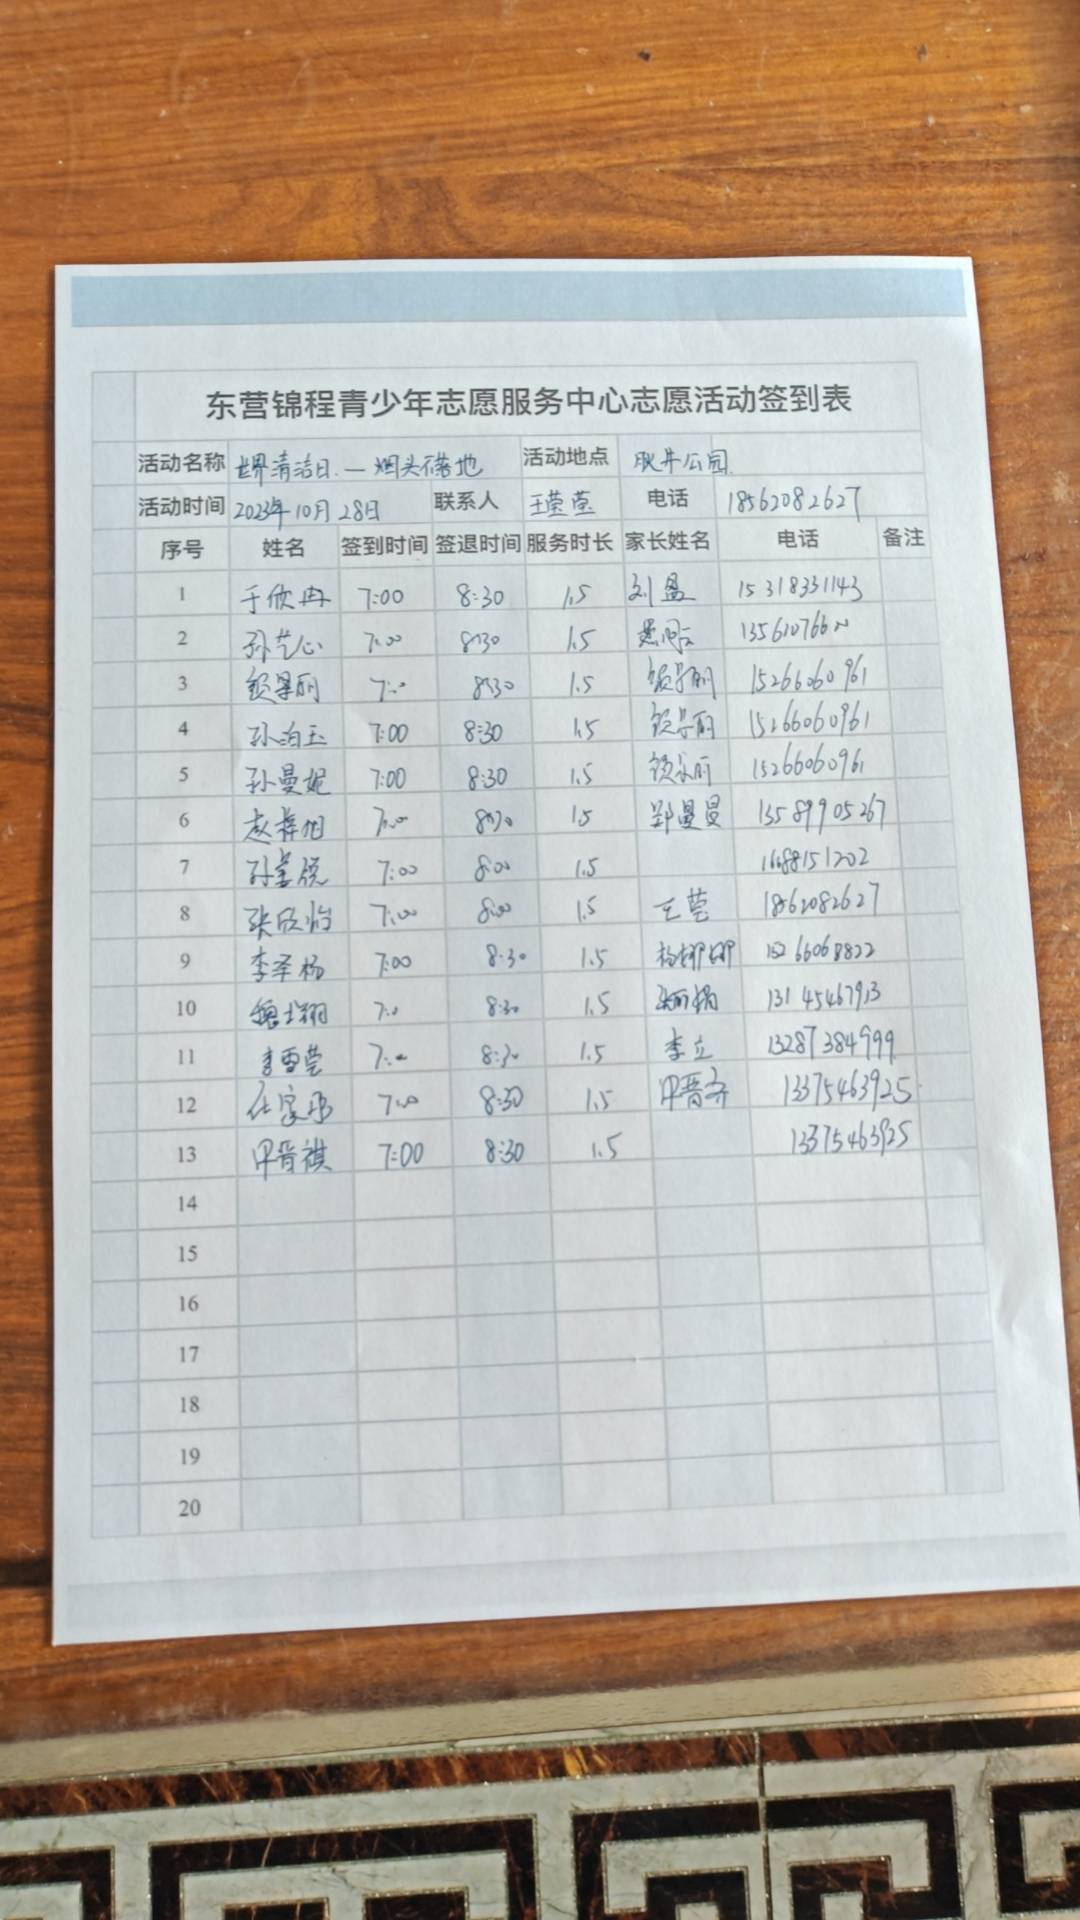 东营锦程青少年志愿服务中心志愿活动签到表
活动名称 世界清洁日.—烟头不落地 活动地点 耿井公园
活动时间 2023年10月28日 联系人 王莹莹 电话 18562082627
序号 姓名 签到时间 签退时间 服务时长 家长姓名 电话 备注
1 于欣冉 7:00 8:30 1.5 刘盈 15318331143
2 孙艺心 7:00 8:30 1.5
3 7:00 8:30 1.5 15266060961
4 孙泊玉 7:00 8:30 1.5 15266060961
5 孙曼妮 7:00 8:30 1.5 15266060961
6 赵梓旭 7:00 8:30 1.5 郑曼曼 13589905267
7 7:00 8:00 1.5
8 张欣怡 7:00 8:00 1.5 王莹 18562082627
9 李泽杨 7:00 8:30 1.5 杨娜娜 15266068822
10 7:00 8:30 1.5 13145467913
11 李雪莹 7:00 8:30 1.5 李立 13287384999
12 7:00 8:30 1.5 13375463925
13 7:00 8:30 1.5 13375463925
14
15
16
17
18
19
20